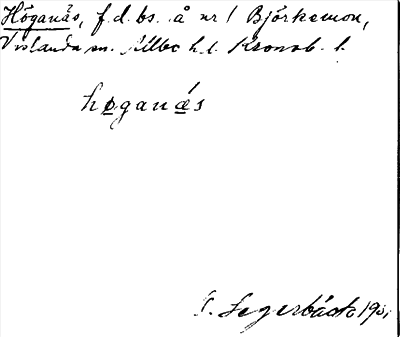 Höganäs, f.d. bs. å nr 1 Björkemon,
Vislanda sn. Allbo h. l. Kronob. l.
høganǽs
Segerbäck 19